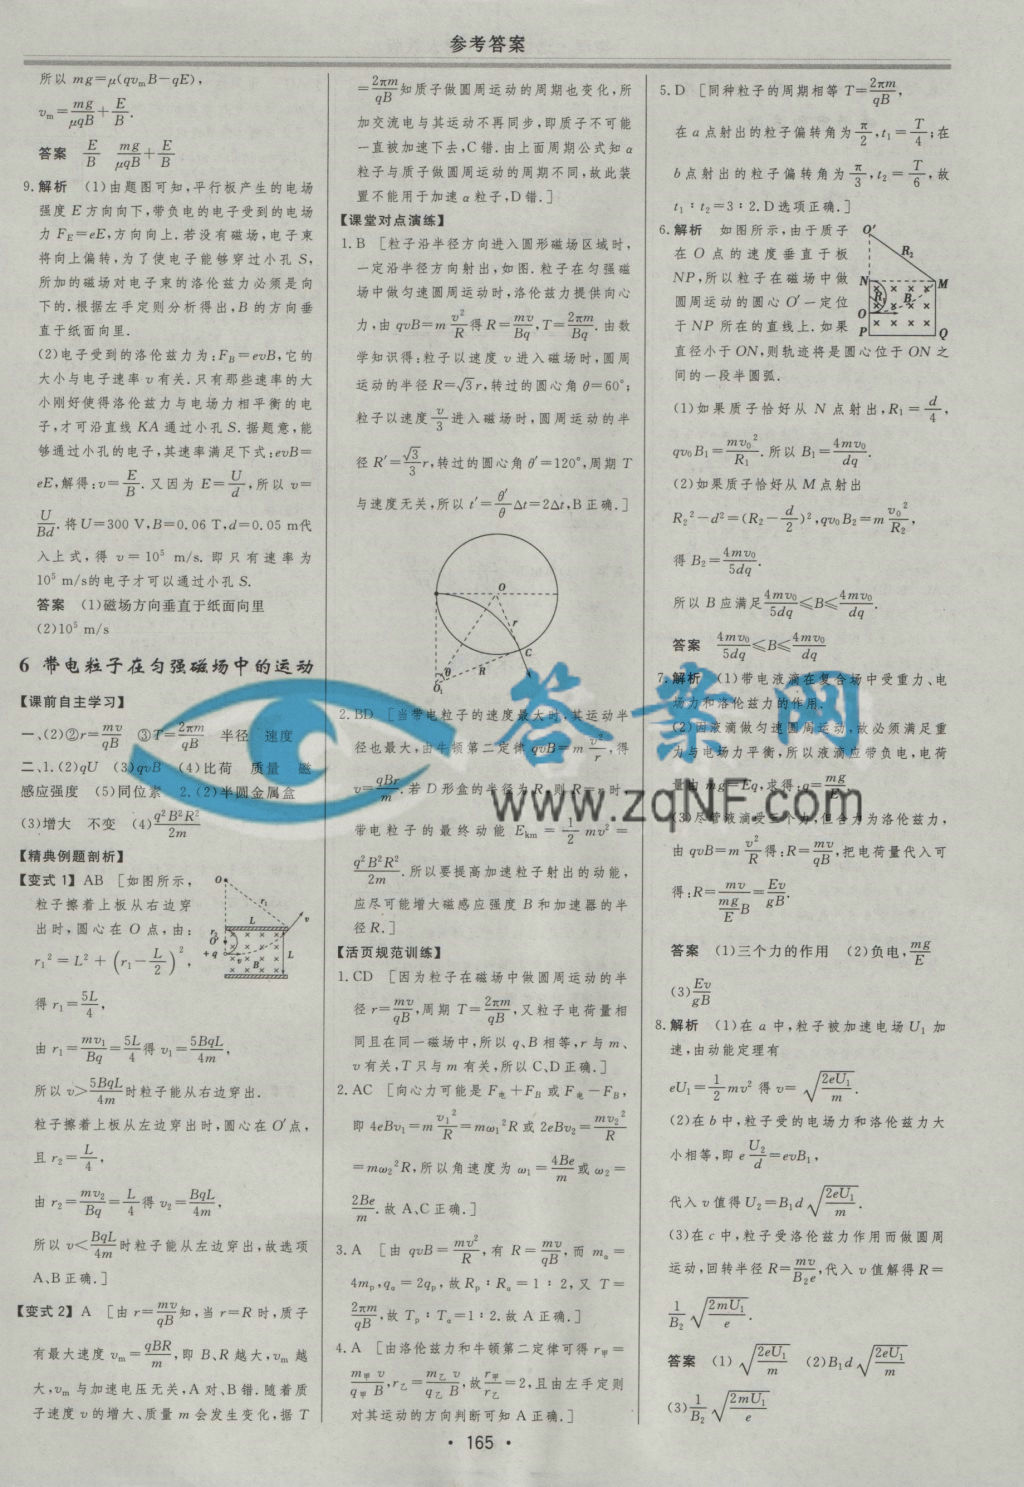 参考答案
所以 mg=μ(qvmB-qE),
vm=mg/μqB+E/B.
答案 E/B mg/μqB+E/B
9.解析 (1)由题图可知,平行板产生的电场
强度E方向向下,带负电的电子受到的电场
力FE=eE,方向向上.若没有磁场,电子束
将向上偏转,为了使电子能够穿过小孔S,
所加的磁场对电子束的洛伦兹力必须是向
下的.根据左手定则分析得出,B的方向垂
直于纸面向里.
(2)电子受到的洛伦兹力为:FB=evB,它的
大小与电子速率v有关.只有那些速率的大
小刚好使得洛伦兹力与电场力相平衡的电
子,才可沿直线KA通过小孔S.据题意,能
够通过小孔的电子,其速率满足下式:evB=
eE,解得:v=E/B.又因为E=U/d,所以v=
U/Bd.将U=300 V,B=0.06 T,d=0.05 m代
入上式,得v=10⁵ m/s.即只有速率为
10⁵ m/s的电子才可以通过小孔S.
答案 (1)磁场方向垂直于纸面向里
(2)10⁵ m/s
6 带电粒子在匀强磁场中的运动
【课前自主学习】
一、(2)②r=mv/qB ③T=2πm/qB 半径 速度
二、1.(2)qU (3)qvB (4)比荷 质量 磁
感应强度 (5)同位素 2.(2)半圆金属盒
(3)增大 不变 (4)q²B²R²/2m
【精典例题剖析】
【变式1】AB [如图所示,
粒子擦着上板从右边穿
出时,圆心在O点,由:
r₁²=L²+(r₁-L/2)²,
得r₁=5L/4,
由r₁=mv₁/Bq=5L/4得v₁=5BqL/4m,
所以v>5BqL/4m时粒子能从右边穿出.
粒子擦着上板从左边穿出时,圆心在O′点,
且r₂=L/4,
由r₂=mv₂/Bq=L/4得v₂=BqL/4m,
所以v<BqL/4m时粒子能从左边穿出,故选项
A、B正确.]
【变式2】A [由r=mv/qB知,当r=R时,质子
有最大速度vm=qBR/m,即B、R越大,vm越
大,vm与加速电压无关,A对、B错.随着质
子速度v的增大、质量m会发生变化,据T
=2πm/qB知质子做圆周运动的周期也变化,所
加交流电与其运动不再同步,即质子不可能
一直被加速下去,C错.由上面周期公式知α
粒子与质子做圆周运动的周期不同,故此装
置不能用于加速α粒子,D错.]
【课堂对点演练】
1.B [粒子沿半径方向进入圆形磁场区域时,
一定沿半径方向射出,如图.粒子在匀强磁
场中做匀速圆周运动时,洛伦兹力提供向心
力,由qvB=mv²/R得R=mv/Bq,T=2πm/Bq.由数
学知识得:粒子以速度v进入磁场时,圆周
运动的半径R=√3r,转过的圆心角θ=60°;
粒子以速度v/3进入磁场时,圆周运动的半
径R′=√3/3r,转过的圆心角θ′=120°,周期T
与速度无关,所以t′=θ′/θΔt=2Δt,B正确.]
2.BD [当带电粒子的速度最大时,其运动半
径也最大,由牛顿第二定律qvB=mv²/r,得
v=qBr/m.若D形盒的半径为R,则R=r时,
带电粒子的最终动能Ekm=1/2mv²=
q²B²R²/2m.所以要提高加速粒子射出的动能,
应尽可能增大磁感应强度B和加速器的半
径R.]
【活页规范训练】
1.CD [因为粒子在磁场中做圆周运动的半
径r=mv/qB,周期T=2πm/qB,又粒子电荷量相
同且在同一磁场中,所以q、B相等,r与m、
v有关,T只与m有关,所以C、D正确.]
2.AC [向心力可能是F电+FB或F电-FB,
即4eBv₁=mv₁²/R=mω₁²R或2eBv₂=mv₂²/R
=mω₂²R,所以角速度为ω₁=4Be/m或ω₂=
2Be/m.故A、C正确.]
3.A [由qvB=mv²/R,有R=mv/qB,而mα=
4mp,qα=2qp,故Rp∶Rα=1∶2,又T=
2πm/qB,故Tp∶Tα=1∶2.故A正确.]
4.A [由洛伦兹力和牛顿第二定律可得r甲=
m甲v/q甲B,r乙=m乙v/q乙B,故r甲/r乙=2,且由左手定则
对其运动的方向判断可知A正确.]
5.D [同种粒子的周期相等T=2πm/qB,
在a点射出的粒子偏转角为π/2,t₁=T/4;在
b点射出的粒子偏转角为π/3,t₂=T/6,故
t₁∶t₂=3∶2.D选项正确.]
6.解析 如图所示,由于质子
在O点的速度垂直于板
NP,所以粒子在磁场中做
圆周运动的圆心O′一定位
于NP所在的直线上.如果
直径小于ON,则轨迹将是圆心位于ON之
间的一段半圆弧.
(1)如果质子恰好从N点射出,R₁=d/4,
qv₀B₁=mv₀²/R₁.所以B₁=4mv₀/dq.
(2)如果质子恰好从M点射出
R₂²-d²=(R₂-d/2)²,qv₀B₂=mv₀²/R₂,
得B₂=4mv₀/5dq.
所以B应满足4mv₀/5dq≤B≤4mv₀/dq.
答案 4mv₀/5dq≤B≤4mv₀/dq
7.解析 (1)带电液滴在复合场中受重力、电
场力和洛伦兹力的作用.
(2)因液滴做匀速圆周运动,故必须满足重
力与电场力平衡,所以液滴应带负电,电荷
量由mg=Eq,求得:q=mg/E
(3)尽管液滴受三个力,但合力为洛伦兹力,
由qvB=mv²/R得:R=mv/qB,把电荷量代入可
得:R=mv/(mg/E B)=Ev/gB.
答案 (1)三个力的作用 (2)负电,mg/E
(3)Ev/gB
8.解析 (1)在a中,粒子被加速电场U₁加
速,由动能定理有
eU₁=1/2mv²得v=√(2eU₁/m).
(2)在b中,粒子受的电场力和洛伦兹力大
小相等,即eU₂/d=evB₁,
代入v值得U₂=B₁d√(2eU₁/m).
(3)在c中,粒子受洛伦兹力作用而做圆周
运动,回转半径R=mv/B₂e,代入v值解得R=
1/B₂√(2mU₁/e).
答案 (1)√(2eU₁/m) (2)B₁d√(2eU₁/m)
(3)1/B₂√(2mU₁/e)
答案网
www.zqNF.com
• 165 •